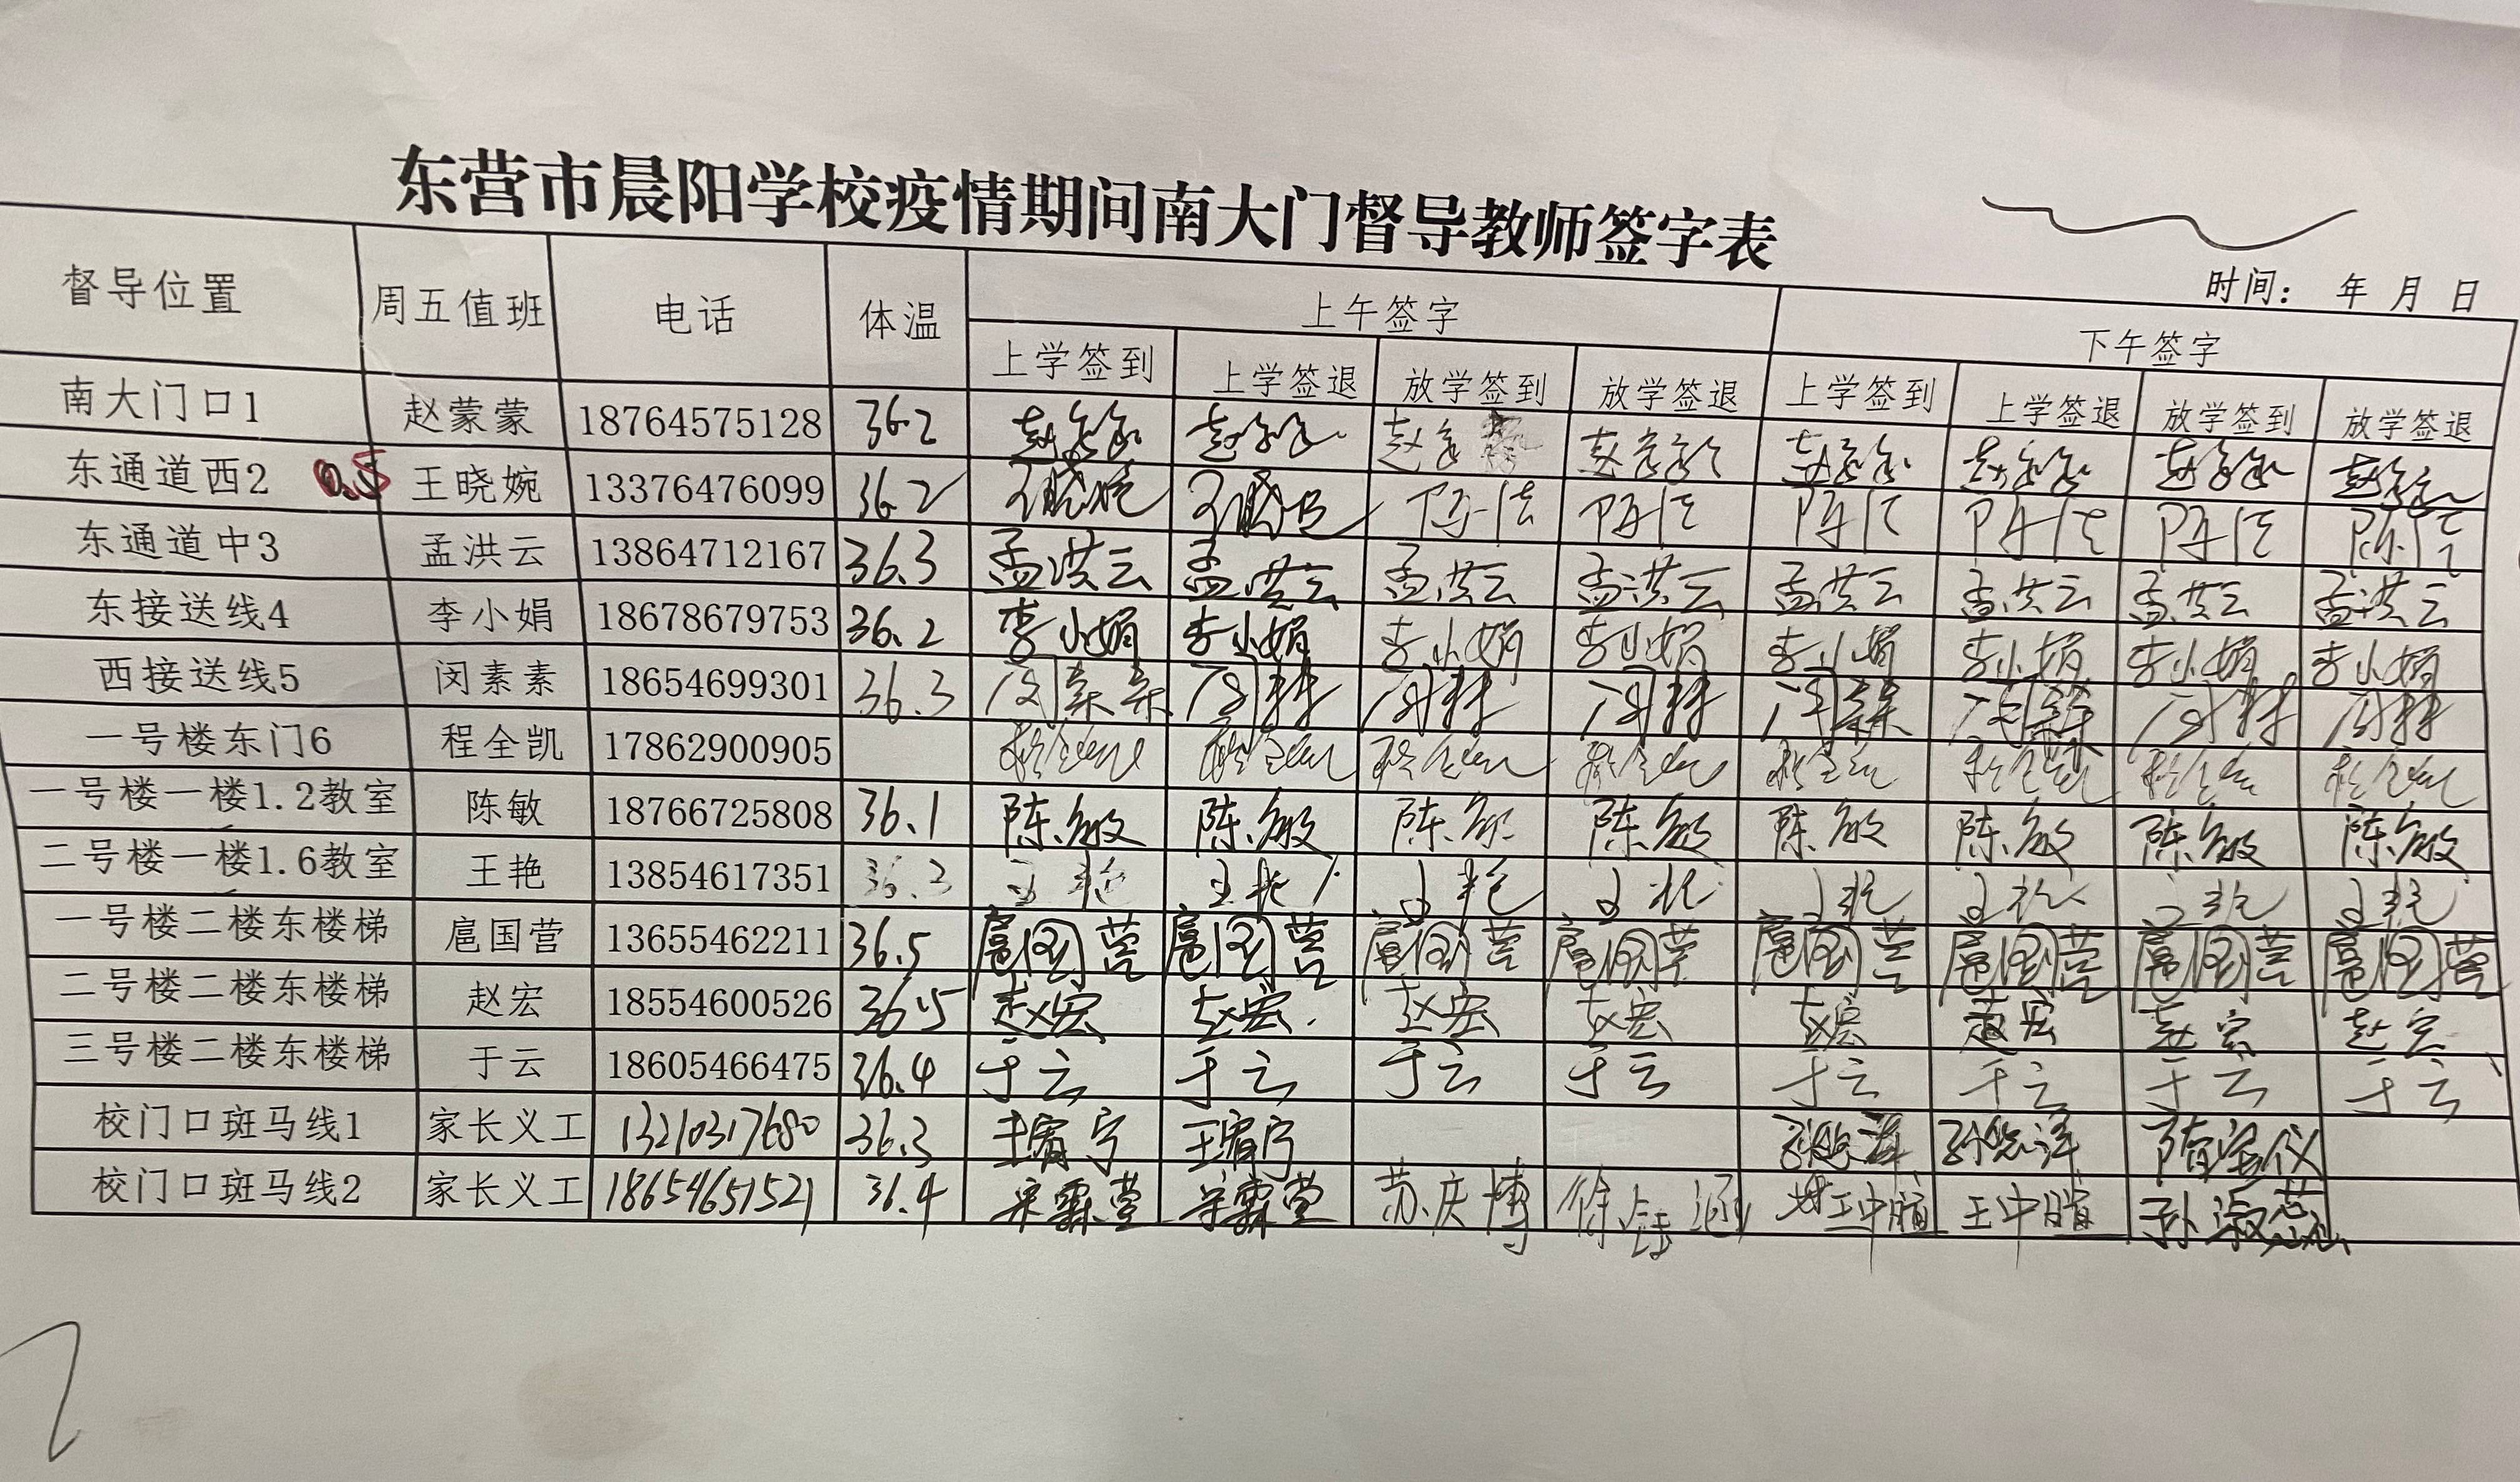 东营市晨阳学校疫情期间南大门督导教师签字表
时间： 年 月 日
督导位置 周五值班 电话 体温 上午签字 下午签字
上学签到 上学签退 放学签到 放学签退 上学签到 上学签退 放学签到 放学签退
南大门口1 赵蒙蒙 18764575128 36.2 赵蒙蒙 赵蒙蒙 赵蒙蒙 赵蒙蒙 赵蒙蒙 赵蒙蒙 赵蒙蒙
东通道西2 0.5 王晓婉 13376476099 36.2 王晓婉 王晓婉
东通道中3 孟洪云 13864712167 36.3 孟洪云 孟洪云 孟洪云 孟洪云 孟洪云 孟洪云 孟洪云 孟洪云
东接送线4 李小娟 18678679753 36.2 李小娟 李小娟 李小娟 李小娟 李小娟 李小娟 李小娟 李小娟
西接送线5 闵素素 18654699301 36.3 闵素素 闵素素 闵素素 闵素素 闵素素 闵素素 闵素素 闵素素
一号楼东门6 程全凯 17862900905 程全凯 程全凯 程全凯 程全凯 程全凯 程全凯 程全凯 程全凯
一号楼一楼1.2教室 陈敏 18766725808 36.1 陈敏 陈敏 陈敏 陈敏 陈敏 陈敏 陈敏 陈敏
二号楼一楼1.6教室 王艳 13854617351 36.3 王艳 王艳 王艳 王艳 王艳 王艳 王艳 王艳
一号楼二楼东楼梯 扈国营 13655462211 36.5 扈国营 扈国营 扈国营 扈国营 扈国营 扈国营 扈国营 扈国营
二号楼二楼东楼梯 赵宏 18554600526 36.5 赵宏 赵宏 赵宏 赵宏 赵宏 赵宏 赵宏 赵宏
三号楼二楼东楼梯 于云 18605466475 36.4 于云 于云 于云 于云 于云 于云 于云 于云
校门口斑马线1 家长义工 13210317680 36.3
校门口斑马线2 家长义工 18654651521 36.4 苏庆博 王中暄 王中暄 孙淑蕊